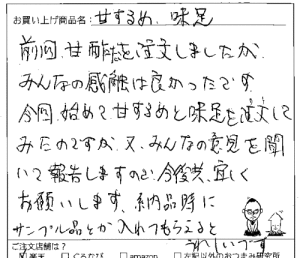 お買い上げ商品名：甘するめ、味足
前回、甘酢を注文しましたが、
みんなの感触は良かったです
今回、始めて甘するめと味足を注文して
みたのですが、又、みんなの意見を聞
いて報告しますので、今後共、宜しく
お願いします、納品時に
サンプル品とか入れてもらえると
うれしいです
ご注文店舗は？
楽天 ぐるなび amazon 左記以外のおつまみ研究所